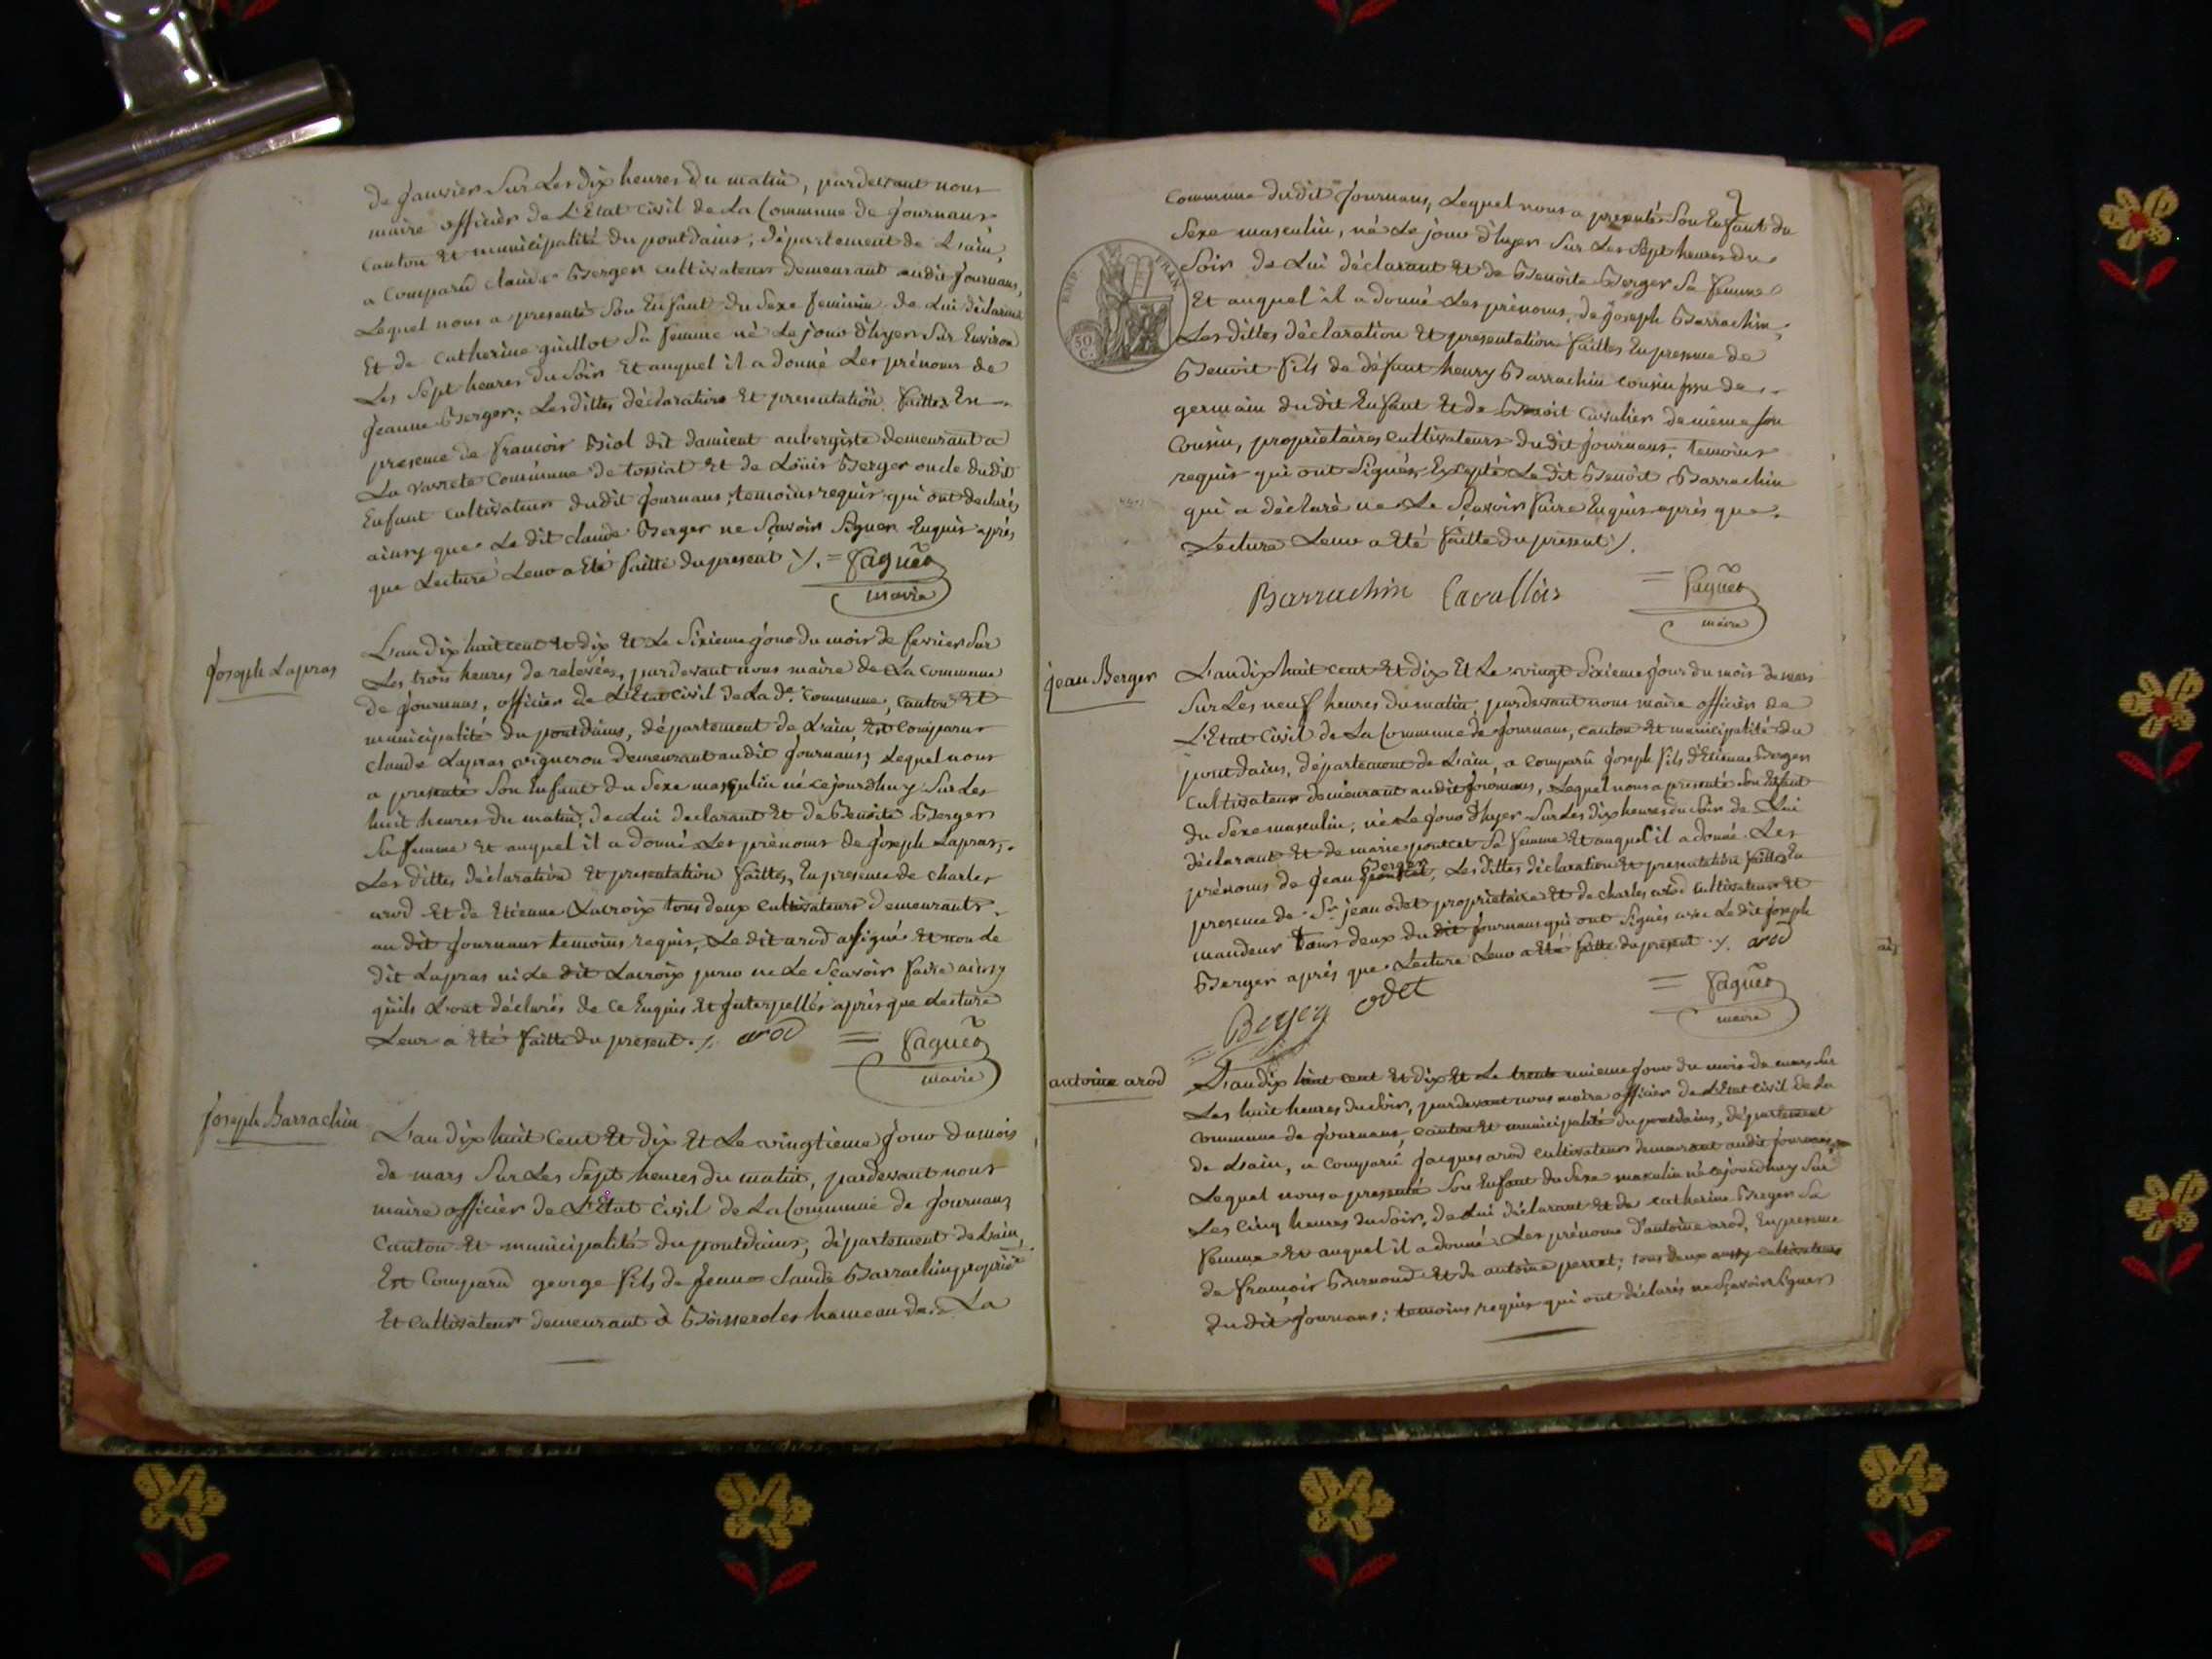 de janvier sur Les dix heures du matin, pardevant nous
maire officier de L'Etat civil de La Commune de journans
canton Et municipalité du pontdains, département de L'ain,
a comparu claude Berger cultivateur demeurant audit journans,
Lequel nous a presenté son Enfant du sexe feminin de Lui déclarant
Et de catherine guillot sa femme né Le jour d'hyer sur Environ
Les sept heures du soir Et auquel il a donné Les prénoms de
jeanne Berger; Lesdittes déclaration Et presentation faittes En
presence de francois Biol dit damient aubergiste demeurant a
La vavrete commune de tossiat Et de Loüis Berger oncle dudit
Enfant cultivateur dudit journans, temoins requis qui ont declarés
ainsy que Le dit claude Berger ne sçavoir signer Enquis après
que Lecture Leur a Eté faitte du present ./. = faguet
maire
joseph Lapras
L'an dix huit cent Et dix Et Le sixieme jour du mois de fevrier sur
Les trois heures de relevées, pardevant nous maire de La commune
de journans, officier de L'Etat civil de La de. commune, canton Et
municipalité du pontdains, département de L'ain, Est comparus
claude Lapras vigneron demeurant audit journans, Lequel nous
a presenté son Enfant du sexe masculin né cejourdhuy sur Les
huit heures du matin, de Lui declarant Et de Benoite Berger
sa femme Et auquel il a donné Les prénoms de joseph Lapras;
Les dittes déclaration Et presentation faittes, En presence de charles
arod Et de Etienne Lacroix tous deux cultivateurs demeurants
au dit journans temoins requis, Le dit arod a signé Et non Le
dit Lapras ni Le dit Lacroix pour ne Le sçavoir faire ainsy
qu'ils L'ont déclarés de ce Enquis Et interpellés après que Lecture
Leur a Eté faitte du present ./. arod = faguet
maire
joseph Barrachin
L'an dix huit Cent Et dix Et Le vingtieme jour du mois
de mars sur Les sept heures du matin, pardevant nous
maire officier de L'Etat civil de La Commune de journans
Canton Et municipalité du pontdains, département de L'ain,
Est Comparu george fils de jean claude Barrachin proprie.re
Et cultivateur demeurant à Boisseroles hameau de La
2
commune dudit journans, Lequel nous a presenté son Enfant du
sexe masculin, né Le jour d'hyer sur Les sept heures du
soir de Lui déclarant Et de Benoite Berger sa femme
Et auquel il a donné Les prénoms de joseph Barrachin;
Les dittes déclaration Et presentation faittes En presence de
Benoit fils de défunt henry Barrachin cousin issu de
germain du dit Enfant Et de Benoit Cavalier de même son
Cousin, proprietaires cultivateurs dudit journans, temoins
requis qui ont signés, Excepté Le dit Benoit Barrachin
qui a déclaré ne Le sçavoir faire Enquis après que
Lecture Leur a Eté faitte du present ./.
EMP. FRAN.
50 C.
Barrachin Cavallier = faguet
maire
jean Berger
L'an dix huit cent Et dix Et Le vingt sixieme jour du mois de mars
sur Les neuf heures du matin, pardevant nous maire officier de
L'Etat civil de La Commune de journans, canton Et municipalité du
pont dains, département de L'ain, a comparu joseph fils d'Etienne Berger
cultivateur demeurant audit journans, Lequel nous a presenté son Enfant
du sexe masculin, né Le jour d'hyer sur Les dix heures du soir de Lui
déclarant Et de marie pontcet sa femme Et auquel il a donné Les
prénoms de jean Berger, Les dittes déclaration Et presentation faittes En
presence de Sr. jean odet proprietaire Et de charles arod cultivateur Et
mandeur tous deux du dit journans qui ont signés avec Le dit joseph
Berger après que Lecture Leur a Eté faitte du present ./. arod
Berger odet = faguet
maire
antoine arod
L'an dix huit cent Et dix Et Le trente unieme jour du mois de mars sur
Les huit heures du soir, pardevant nous maire officier de L'Etat civil de La
commune de journans, canton Et municipalité du pontdains, département
de L'ain, a comparu jacques arod cultivateur demeurant audit journans,
Lequel nous a presenté son Enfant du sexe masculin né cejourdhuy sur
Les cinq heures du soir, de Lui déclarant Et de catherine Breger sa
femme Et auquel il a donné Les prénoms d'antoine arod, En presence
de francois Burnond Et de antoine perret; tous deux aussy cultivateurs
du dit journans; temoins requis qui ont déclarés ne sçavoir signer